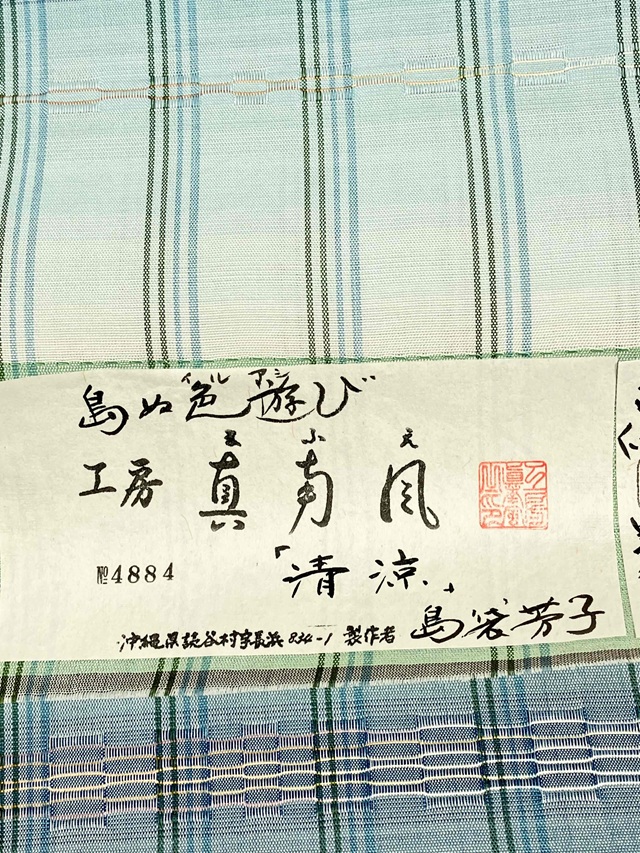 イル アシ
島ぬ色遊び
ま ふ え
工房 真南風
№4884
「清涼」
沖縄県読谷村字長浜 製作者 島袋芳子